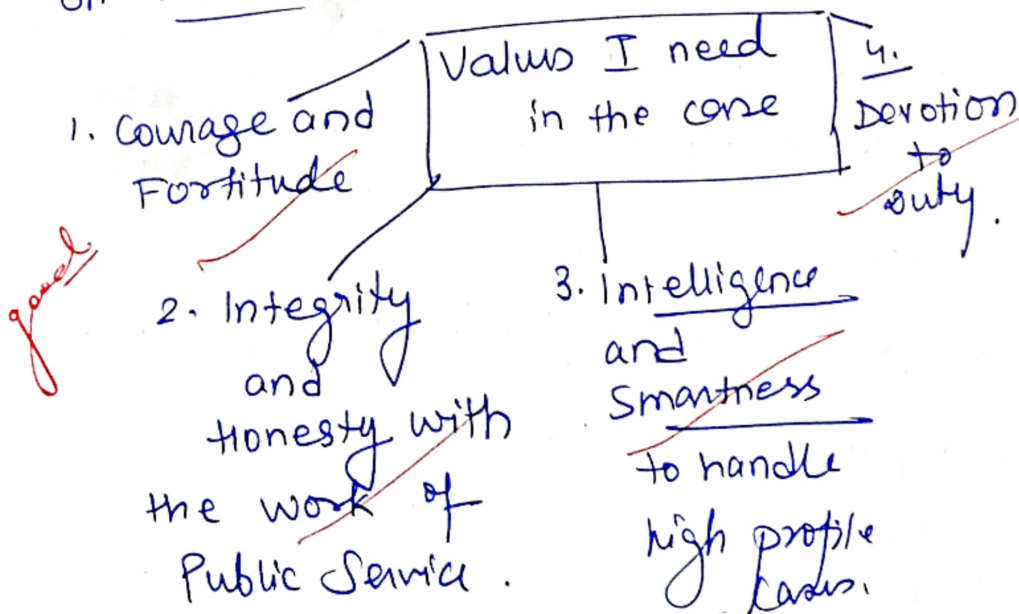 Values I need
in the case
1. Courage and
Fortitude
2. Integrity
and
Honesty with
the work of
Public Service.
3. Intelligence
and
Smartness
to handle
high profile
cases.
4.
Devotion
to
Duty.
good